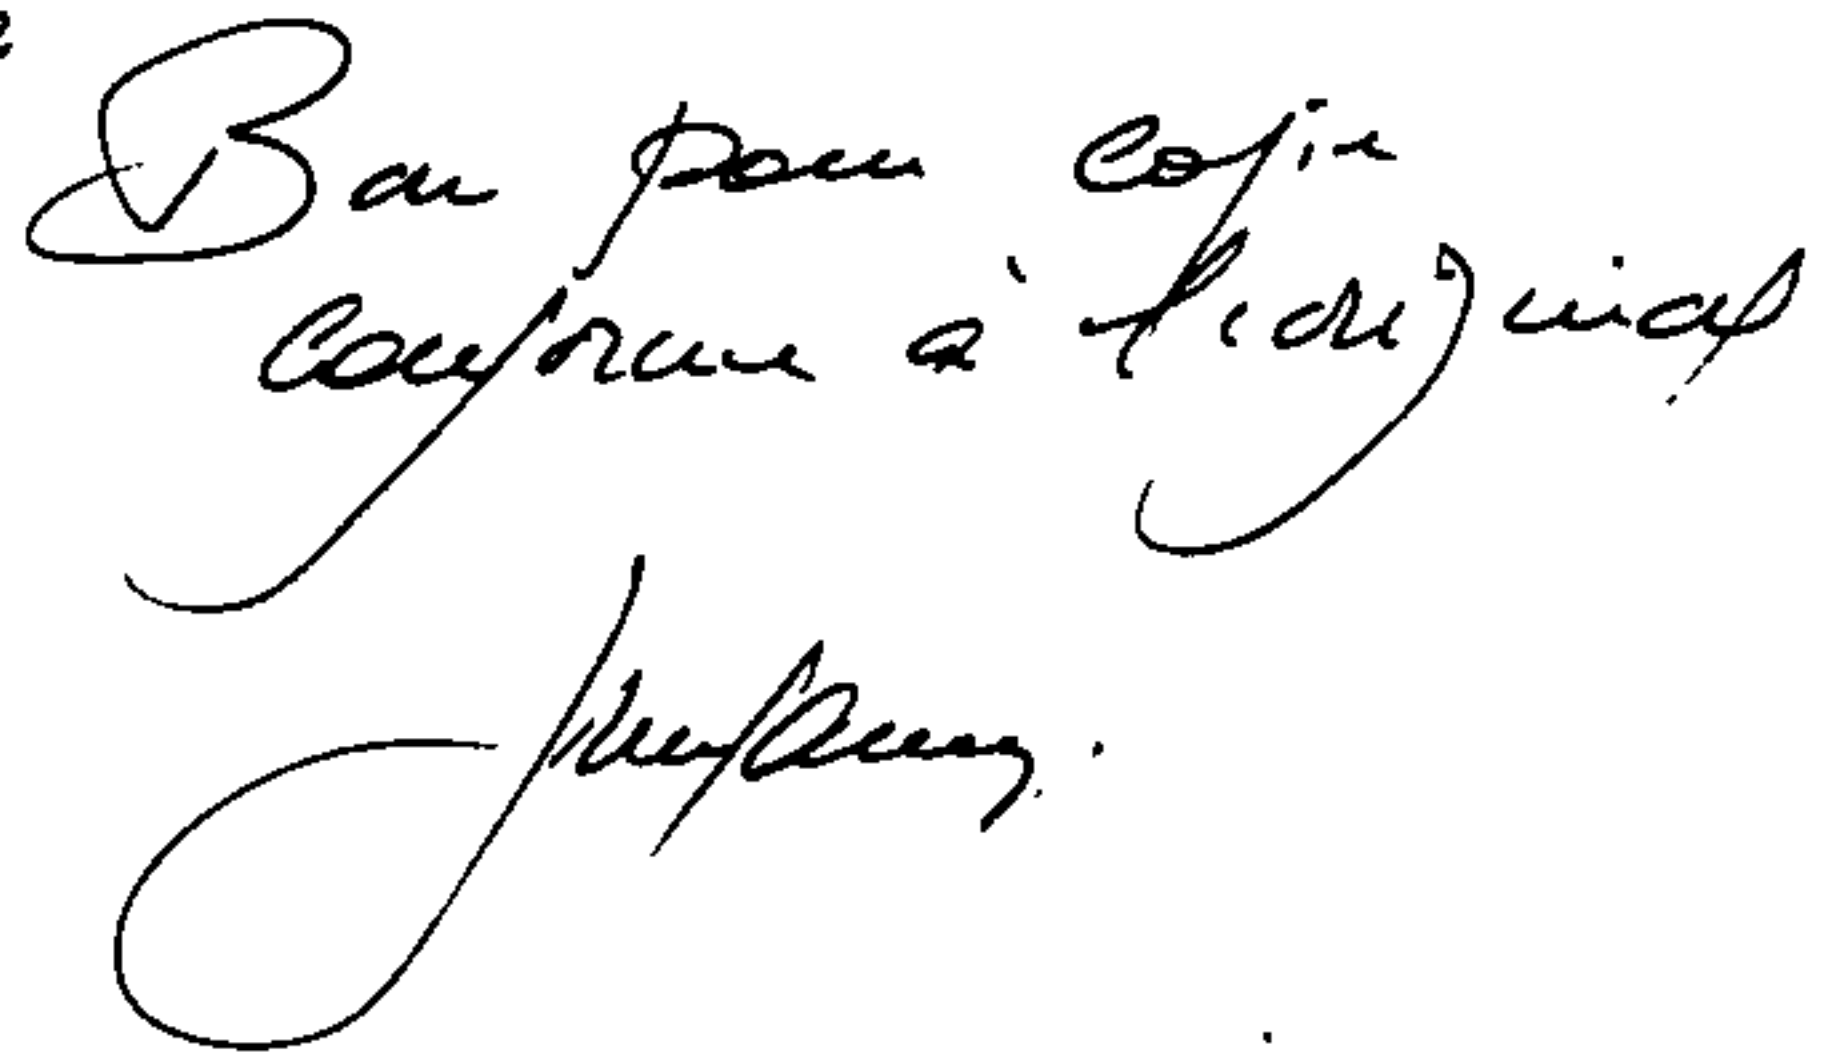 Bon pour copie
conforme à l'original